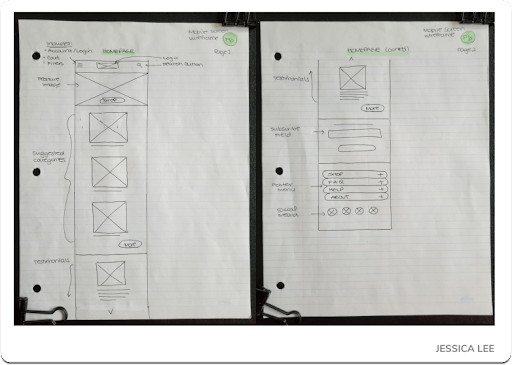 Mobile Screen
Wireframe
Page 1
Includes:
• Account/Login
• Cart
HOMEPAGE
Logo
Search Button
Feature
Image
SHOP
Suggested
Categories
MORE
Testimonials
Mobile Screen
Wireframe
Page 2
HOMEPAGE (cont'd)
Testimonials
MORE
Subscribe
Field
Footer
Menu
SHOP +
FAQ +
HELP +
ABOUT +
Social
Media
JESSICA LEE